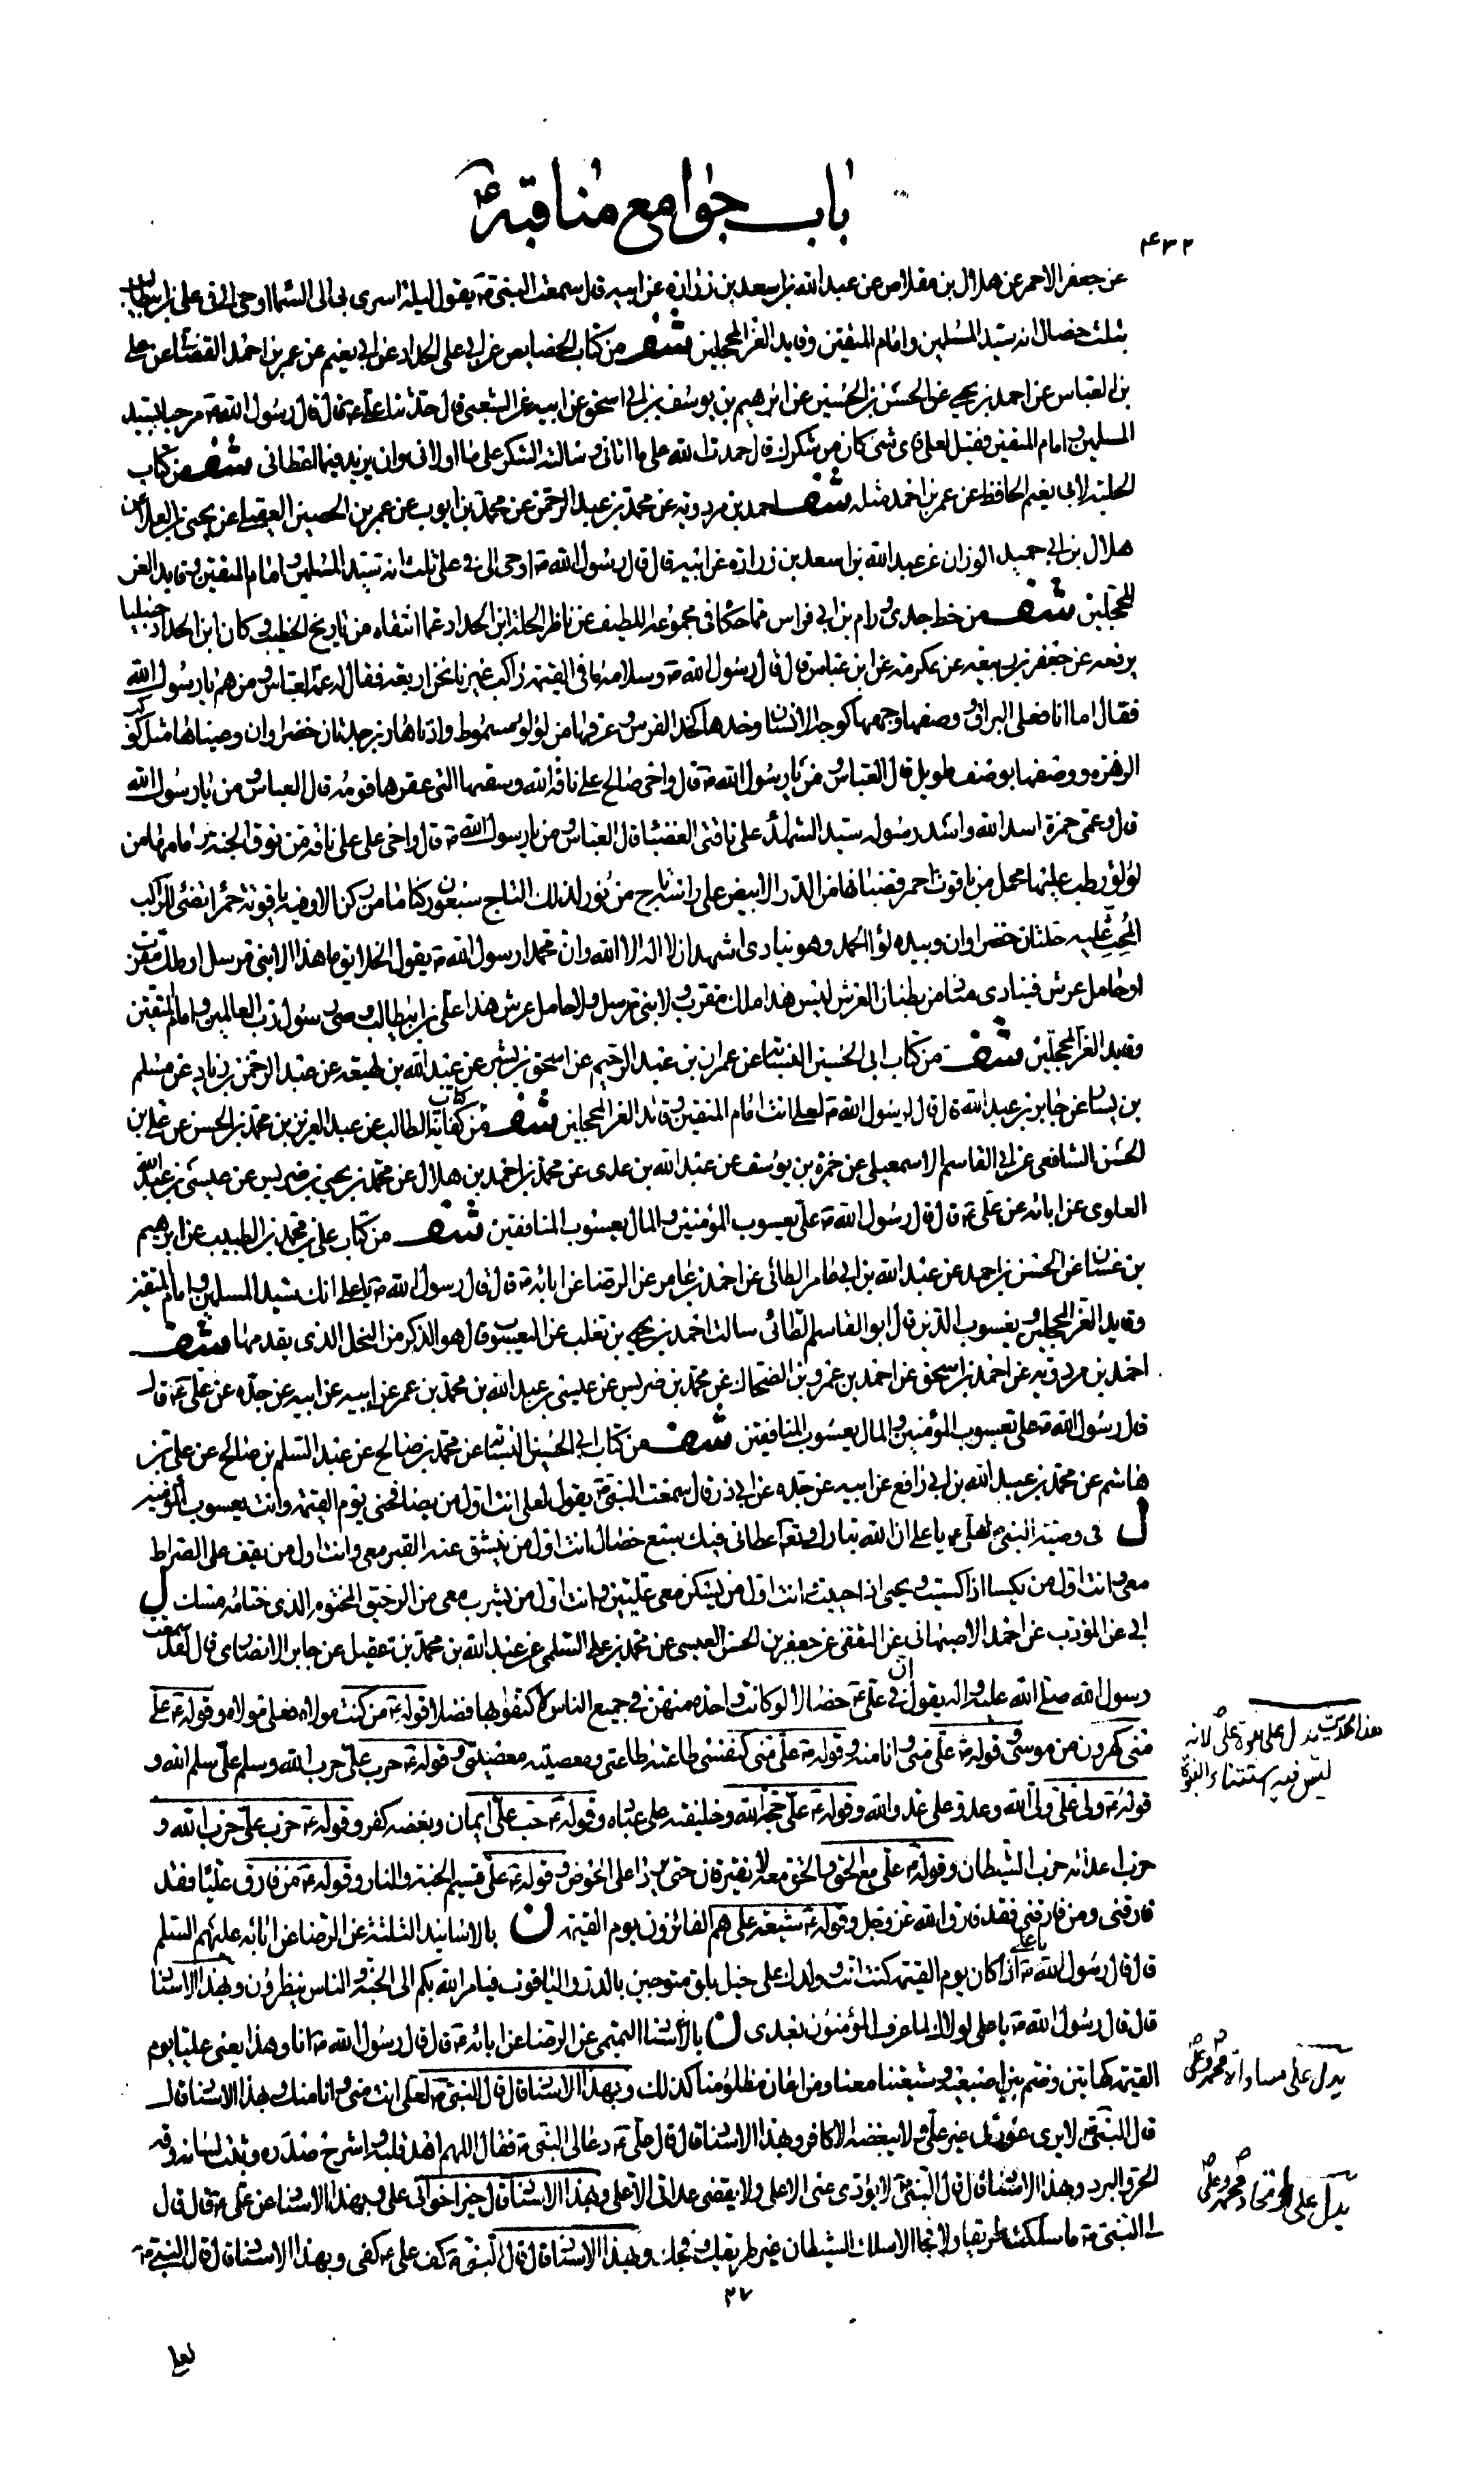 باب جوامع مناقبه ع
٤٣٢
عن جعفر الاحمر عن هلال بن مقلاص عن عبد الله بن اسعد بن زرارة عن ابيه قال سمعت النبي ص يقول ليلة اسرى بى الى السماء اوحى الى فى على بن ابيطالب
بثلث خصال انه سيد المسلمين وامام المتقين وقايد الغر المحجلين شف من كتاب الخصايص عن ابى على الحداد عن ابى نعيم عن عمر بن احمد القضبانى عن على
بن العباس عن احمد بن يحيى عن الحسن بن الحسين عن ابرهيم بن يوسف بن ابى اسحق عن ابيه عن الشعبى قال حدثنا على ع قال قال رسول الله ص مرحبا بسيد
المسلمين وامام المتقين فقيل لعلى فاى شئ كان من شكرك قال حمدت الله على ما اتانى وسالته الشكر على ما اولانى وان يزيد فيما اعطانى شف من كتاب
الحلية لابى نعيم الحافظ عن عمر بن احمد مثله شف احمد بن مردويه عن محمد بن عبد الرحمن عن محمد بن ايوب عن عمر بن الحصين العقيلى عن يحيى بن العلا عن
هلال بن ابى حميد الوزان عن عبد الله بن اسعد بن زرارة عن ابيه قال قال رسول الله ص اوحى الى فى على ثلث انه سيد المسلمين وامام المتقين وقايد الغر
المحجلين شف من خط جدى ورام بن ابى فراس مما حكاه فى مجموعه اللطيف عن ناظر الحلة ابن الحداد عما انتقاه من تاريخ الخطيب وكان ابن الحداد حنبليا
يرفعه عن جعفر بن ربيعة عن عكرمة عن ابن عباس قال قال رسول الله ص وسلامه ما فى القيمة راكب غيرنا نحن اربعة فقال له عمه العباس ومن هم يا رسول الله
فقال اما انا فعلى البراق وصفها وجهها كوجه الانسان وخدها كخد الفرس وعرفها من لؤلؤ مسموط واذناها زبرجدتان خضراوان وعيناها مثل كوكب
الزهرة ووصفها بوصف طويل قال العباس ومن يا رسول الله ص قال واخى صالح على ناقة الله وسقيها التى عقرها قومه قال العباس ومن يا رسول الله
قال وعمى حمزة اسد الله واسد رسوله سيد الشهداء على ناقتى العضباء قال العباس ومن يا رسول الله ص قال واخى على على ناقة من نوق الجنة زمامها من
لؤلؤ رطب عليها محمل من ياقوت احمر قضبانها من الدر الابيض على راسه تاج من نور لذلك التاج سبعون ركنا ما من ركن الا وفيه ياقوتة حمراء تضئ للراكب
المحث عليه حلتان خضراوان وبيده لواء الحمد وهو ينادى اشهد ان لا اله الا الله وان محمدا رسول الله ص يقول الخلايق ما هذا الا نبى مرسل او ملك مقرب
او حامل عرش فينادى مناد من بطنان العرش ليس هذا ملك مقرب ولا نبى مرسل ولا حامل عرش هذا على بن ابيطالب وصى رسول رب العالمين وامام المتقين
وقايد الغر المحجلين شف من كتاب ابى الحسين النسابة عن عمران بن عبد الرحيم عن اسحق بن بشر عن عبد الله بن لهيعة عن عبد الرحمن بن زياد عن مسلم
بن يسار عن جابر بن عبد الله قال قال رسول الله ص لعلى انت امام المتقين وقائد الغر المحجلين شف من كتاب كفاية الطالب عن عبد العزيز بن محمد بن الحسن عن على بن
الحسن الشافعى عن ابى القاسم الاسمعيلى عن حمزة بن يوسف عن عبد الله بن عدى عن محمد بن احمد بن هلال عن محمد بن يحيى بن ضريس عن عيسى بن عبد الله
العلوى عن ابائه عن على ع قال قال رسول الله ص على يعسوب المؤمنين والمال يعسوب المنافقين شف من كتاب على بن محمد بن الطبيب عن ابرهيم
بن غسان عن الحسن بن احمد عن عبد الله بن ابى عامر الطائى عن احمد بن عامر عن الرضا عن ابائه ع قال قال رسول الله ص يا على انك سيد المسلمين وامام المتقين
وقايد الغر المحجلين ويعسوب الدين قال ابو القاسم الطائى سالت احمد بن يحيى بن تغلب عن اليعسوب قال هو الذكر من النحل الذى يقدمها شف
احمد بن مردويه عن احمد بن اسحق عن احمد بن عمرو بن الضحاك عن محمد بن ضريس عن عيسى بن عبد الله بن محمد بن عمر عن ابيه عن ابيه عن جده عن على ع قال
قال رسول الله ص على يعسوب المؤمنين والمال يعسوب المنافقين شف من كتاب ابى الحسين النسابة عن محمد بن صالح عن عبد السلم بن صالح عن على بن
هاشم عن محمد بن عبيد الله بن ابى رافع عن ابيه عن جده عن ابى ذر قال سمعت النبي ص يقول لعلى انت اول من يصافحنى يوم القيمة وانت يعسوب المؤمنين
ل فى وصية النبى ص لعلى ع يا على ان الله تبارك وتعالى اعطانى فيك سبع خصال انت اول من ينشق عنه القبر معى وانت اول من يقف على الصراط
معى وانت اول من يكسا اذا كسيت ويحيى اذا حييت وانت اول من يسكن معى عليين وانت اول من يشرب معى من الرحيق المختوم الذى ختامه مسك ل
ابى عن المؤدب عن احمد الاصبهانى عن الثقفى عن جعفر بن الحسن العبسى عن محمد بن على السلمى عن عبد الله بن محمد بن عقيل عن جابر الانصارى قال لقد سمعت
رسول الله صلى الله عليه واله يقول ان فى على ع خصالا لو كانت واحدة منهن فى جميع الناس لاكتفوا بها فضلا قوله ع من كنت مولاه فعلى مولاه وقوله ع على
منى كهرون من موسى وقوله ع على منى وانا منه وقوله ع على منى كنفسى طاعته طاعتى ومعصيته معصيتى وقوله ع حرب على حرب الله وسلم على سلم الله و
قوله ع ولى على ولى الله وعدو على عدو الله وقوله ع على حجة الله وخليفته على عباده وقوله ع حب على ايمان وبغضه كفر وقوله ع حزب على حزب الله و
حزب اعدائه حزب الشيطان وقوله ع على مع الحق والحق معه لا يفترقان حتى يردا على الحوض وقوله ع على قسيم الجنة والنار وقوله ع من فارق عليا فقد
فارقنى ومن فارقنى فقد فارق الله عز وجل وقوله ع شيعة على هم الفائزون يوم القيمة ن بالاسانيد الثلثة عن الرضا عن ابائه عليهم السلم
قال قال رسول الله ص يا على اذا كان يوم القيمة كنت انت وولدك على خيل بلق متوجين بالدر والياقوت فيامر الله بكم الى الجنة والناس ينظرون وبهذا الاسناد
قال قال رسول الله ص يا على لولاك لما عرف المؤمنون بعدى ن بالاسناد التميمى عن الرضا عن ابائه ع قال قال رسول الله ص انا وهذا يعنى عليا يوم
القيمة كهاتين وضم بين اصبعيه وشيعتنا معنا ومن اعان مظلومنا كذلك وبهذا الاسناد قال قال النبى ص لعلى انت منى وانا منك وبهذا الاسناد قال
قال النبى ص لا يرى عورتى غير على ولا يبغضه الا كافر وبهذا الاسناد قال قال على ع دعا لى النبى ص فقال اللهم اهد قلبه واشرح صدره وثبت لسانه وقه
الحر والبرد وبهذا الاسناد قال قال النبى ص لا يؤدى عنى الا على ولا يقضى عداتى الا على وبهذا الاسناد قال خير اخوانى على وبهذا الاسناد عن على ع قال قال
لى النبى ص ما سلكت طريقا ولا فجا الا سلك الشيطان غير طريقك وفجك وبهذا الاسناد قال قال النبى ص كف على ع كفى وبهذا الاسناد قال قال النبى ص
هذا الحديث يدل على نبوة على لانه
ليس فيه استثناء النبوة
يدل على مساواة محمد وعلى
يدل على اتحاد محمد وعلى
٣٧
لعلى